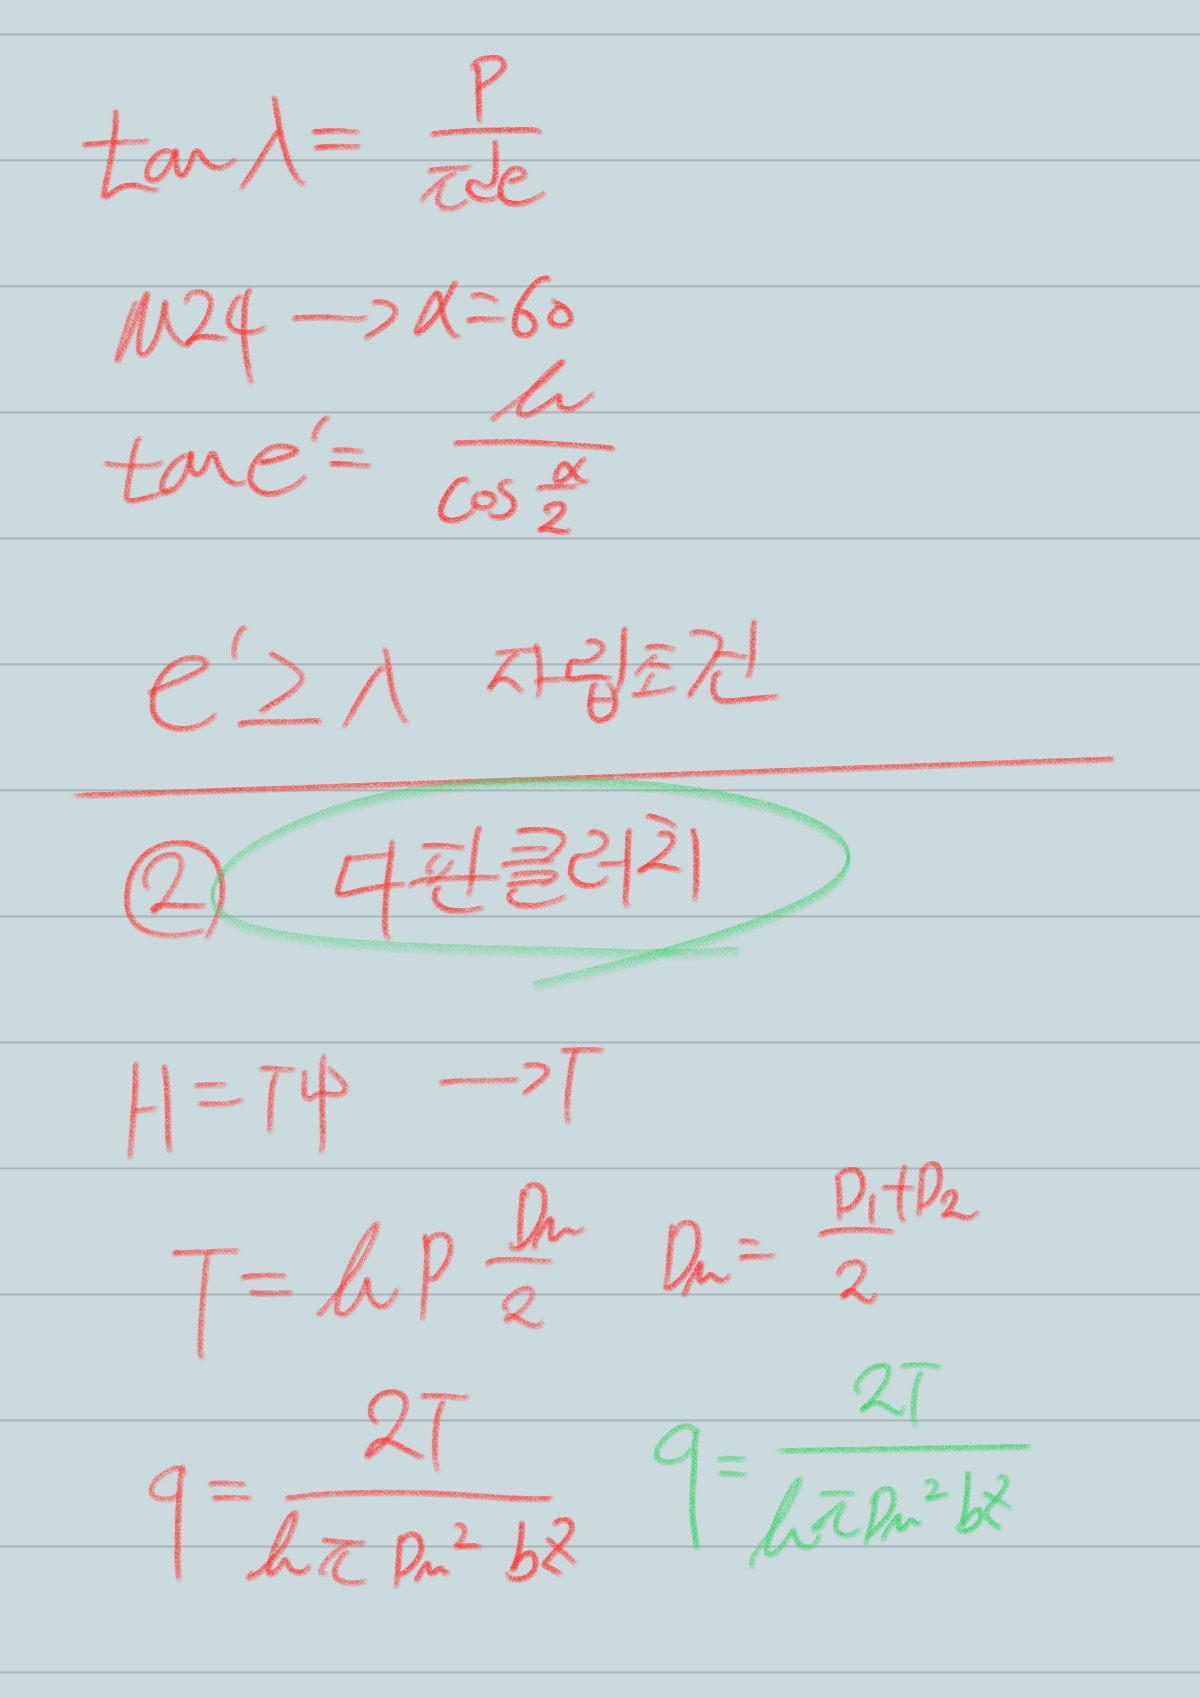 tan λ = P / πde
M24 → α = 60
tan e' = μ / cos α/2
e' ≥ λ 자립조건
② 다판클러치
H = Tψ → T
T = μ P Dm/2 Dm = D1+D2 / 2
q = 2T / μπDm² bz q = 2T / μπDm² bz